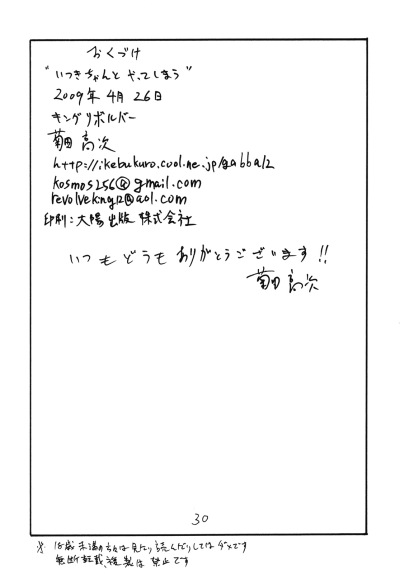 おくづけ
"いつきちゃんとやってしまう"
2009年4月26日
キングリボルバー
菊田 高次
http://ikebukuro.cool.ne.jp/gabba12
kosmos256@gmail.com
revolvekng12@aol.com
印刷：大陽出版株式会社
いつもどうもありがとうございます!!
菊田 高次
30
※18歳未満の方は見たり読んだりしてはダメです
無断転載、複製は禁止です